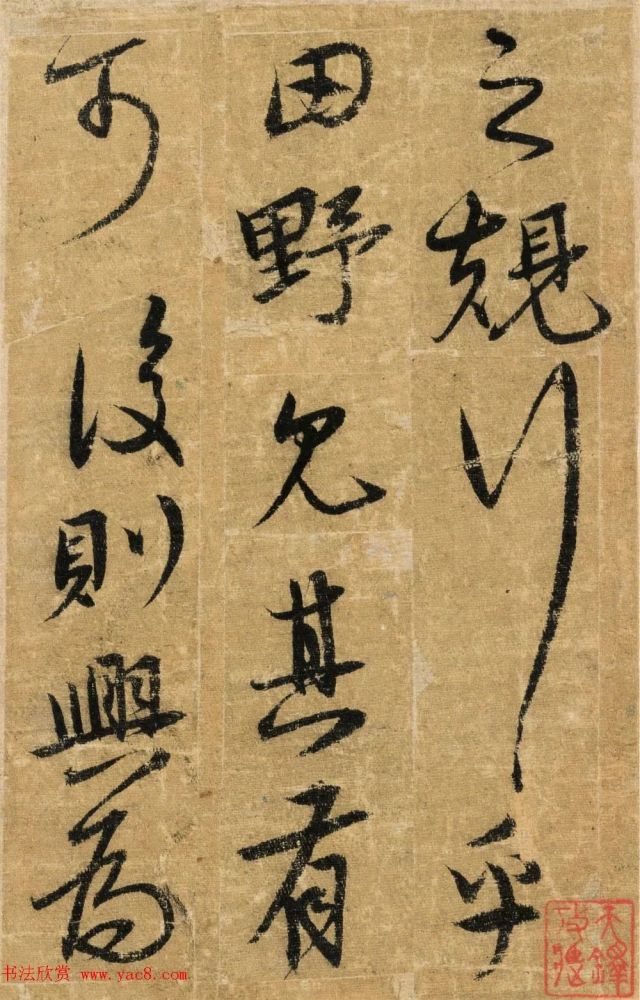 之規行乎
田野見其有
可後則興為
书法欣赏 www.yac8.com